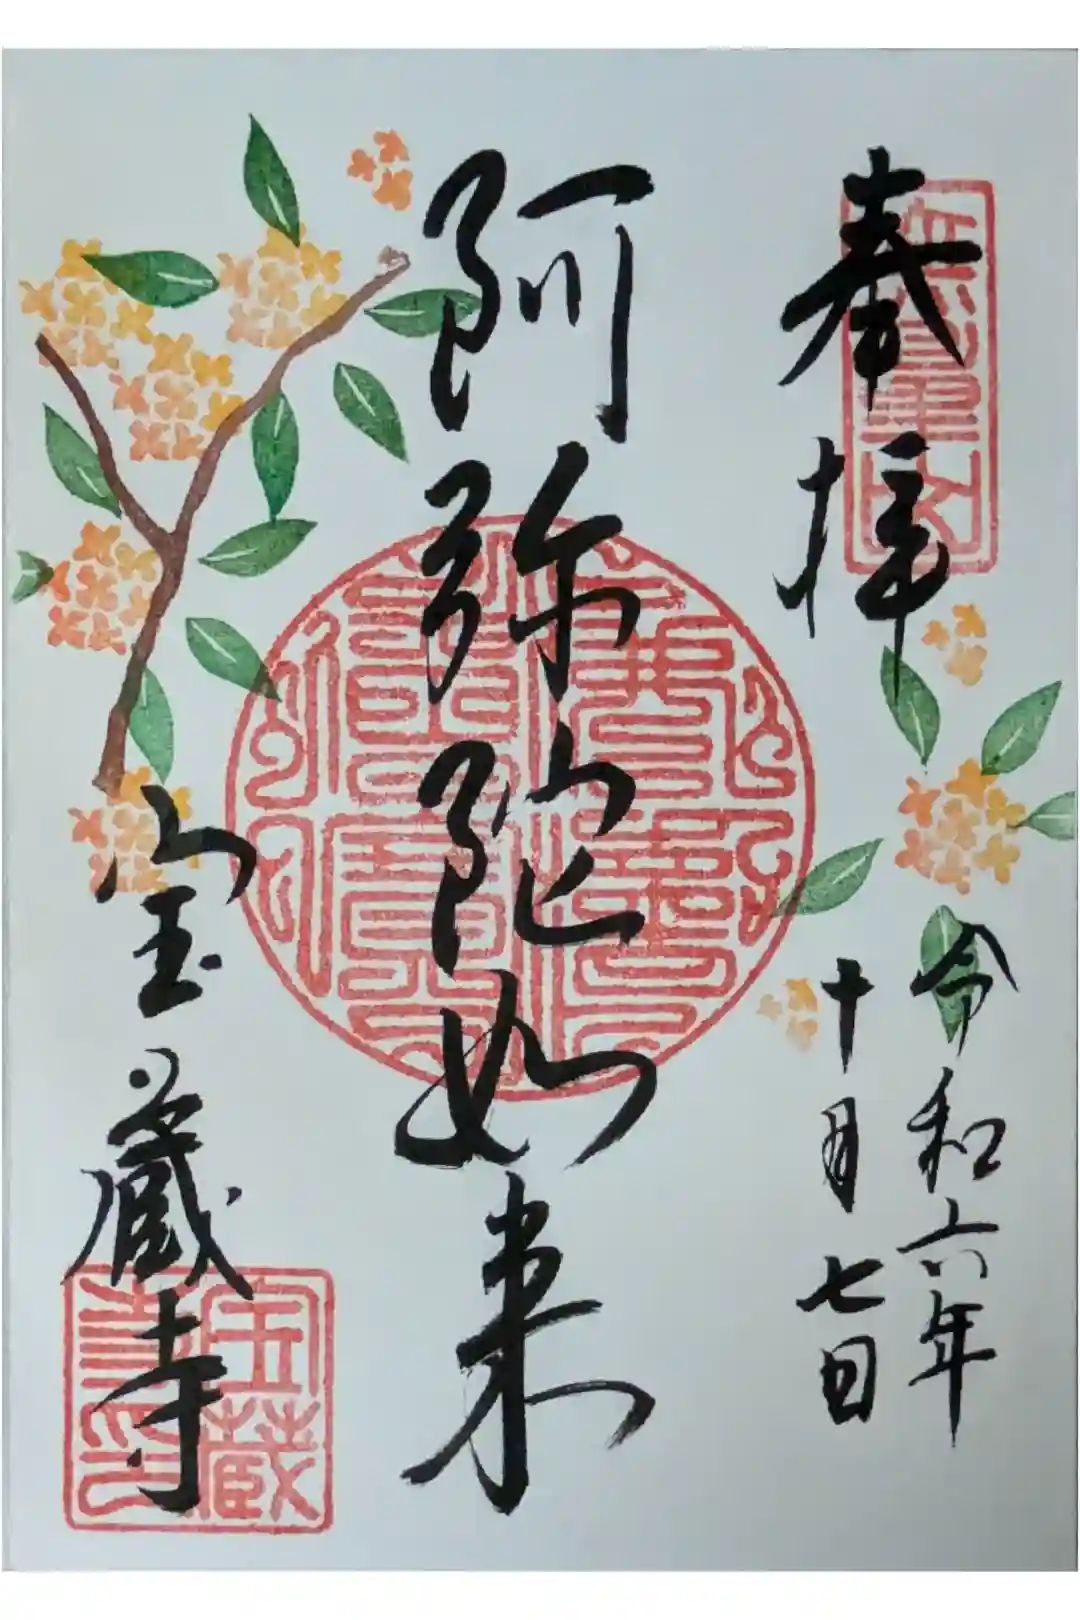 奉拝
令和六年
十月七日
阿弥陀如来
宝蔵寺
宝蔵
寺印